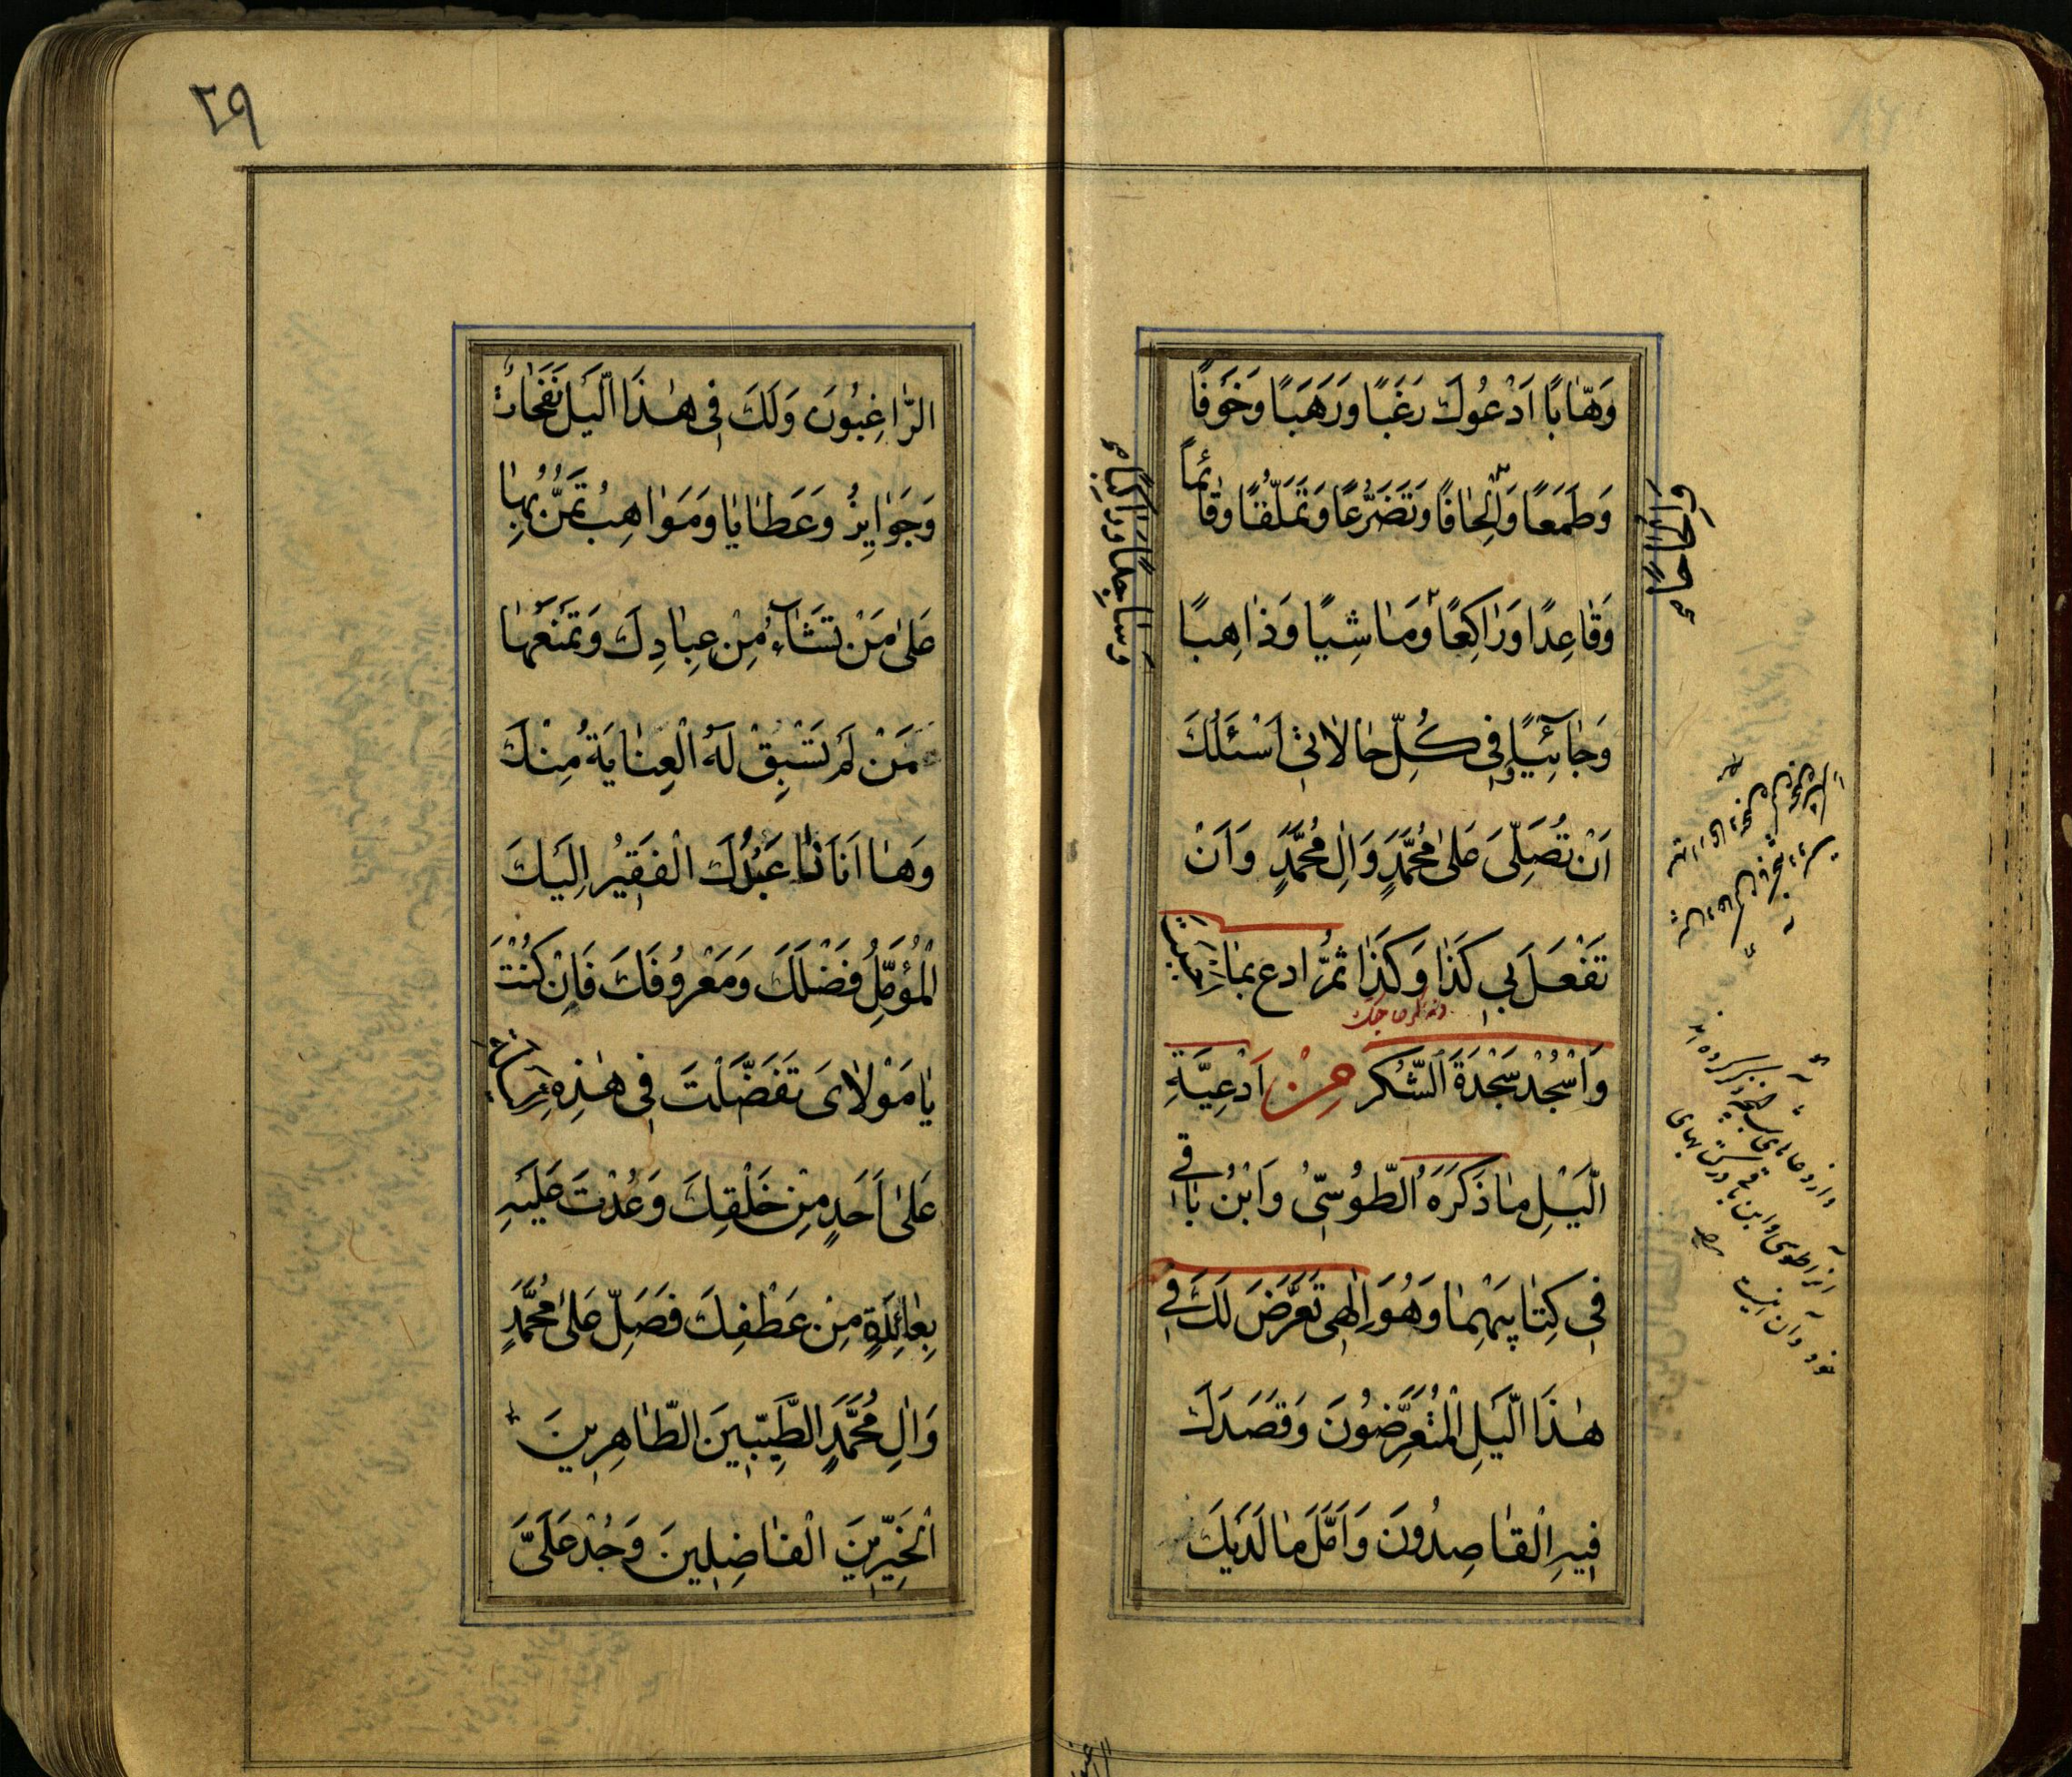 وَهّٰابًا اَدْعُوكَ رَغَبًا وَرَهَبًا وَخَوْفًا
وَطَمَعًا وَاِلْحٰافًا وَتَضَرُّعًا وَتَمَلُّقًا وَقٰائِمًا
وَاِلْحٰاحًا
وَقٰاعِدًا وَرٰاكِعًا وَمٰاشِيًا وَذٰاهِبًا
وَسٰاجِدًا وَرٰاكِبًا
وَجٰائِيًا وَفِي كُلِّ حٰالٰاتِي اَسْئَلُكَ
اَنْ تُصَلِّىَ عَلىٰ مُحَمَّدٍ وَاٰلِ مُحَمَّدٍ وَاَنْ
تَفْعَلَ بِي كَذٰا وَكَذٰا ثُمَّ ادع بمٰا احببت
وتذكر حاجتك
وَاسْجُدْ سَجْدَةَ الشُّكرِ مِنْ اَدْعِيَةِ
الَّيْلِ مٰا ذَكَرَهُ الطُّوسِىُّ وَابْنُ بٰاقِي
فِي كِتٰابَيْهِمٰا وَهُوَ اِلٰهِى تَعَرَّضَ لَكَ فِي
هٰذَا الَّيْلِ الْمُتَعَرِّضُونَ وَقَصَدَكَ
فِيهِ الْقٰاصِدُونَ وَاَمَّلَ مٰا لَدَيْكَ
٢٩
الرّٰاغِبُونَ وَلَكَ فِى هٰذَا الَّيْلِ نَفَحٰاتٌ
وَجَوٰايِزُ وَعَطٰايٰا وَمَوٰاهِبُ تَمُنُّ بِهٰا
عَلىٰ مَنْ تَشٰاءُ مِنْ عِبٰادِكَ وَتَمْنَعُهٰا
مَنْ لَمْ تَسْبِقْ لَهُ الْعِنٰايَةُ مِنْكَ
وَهٰا اَنَا ذٰا عَبْدُكَ الْفَقِيرُ اِلَيْكَ
الْمُؤَمِّلُ فَضْلَكَ وَمَعْرُوفَكَ فَاِنْ كُنْتَ
يٰا مَوْلٰاىَ تَفَضَّلْتَ فِى هٰذِهِ
عَلىٰ اَحَدٍ مِنْ خَلْقِكَ وَعُدْتَ عَلَيْهِ
بِعٰائِدَةٍ مِنْ عَطْفِكَ فَصَلِّ عَلىٰ مُحَمَّدٍ
وَاٰلِ مُحَمَّدٍ الطَّيِّبِينَ الطّٰاهِرِينَ
الْخَيِّرِينَ الْفٰاضِلِينَ وَجُدْ عَلَىَّ